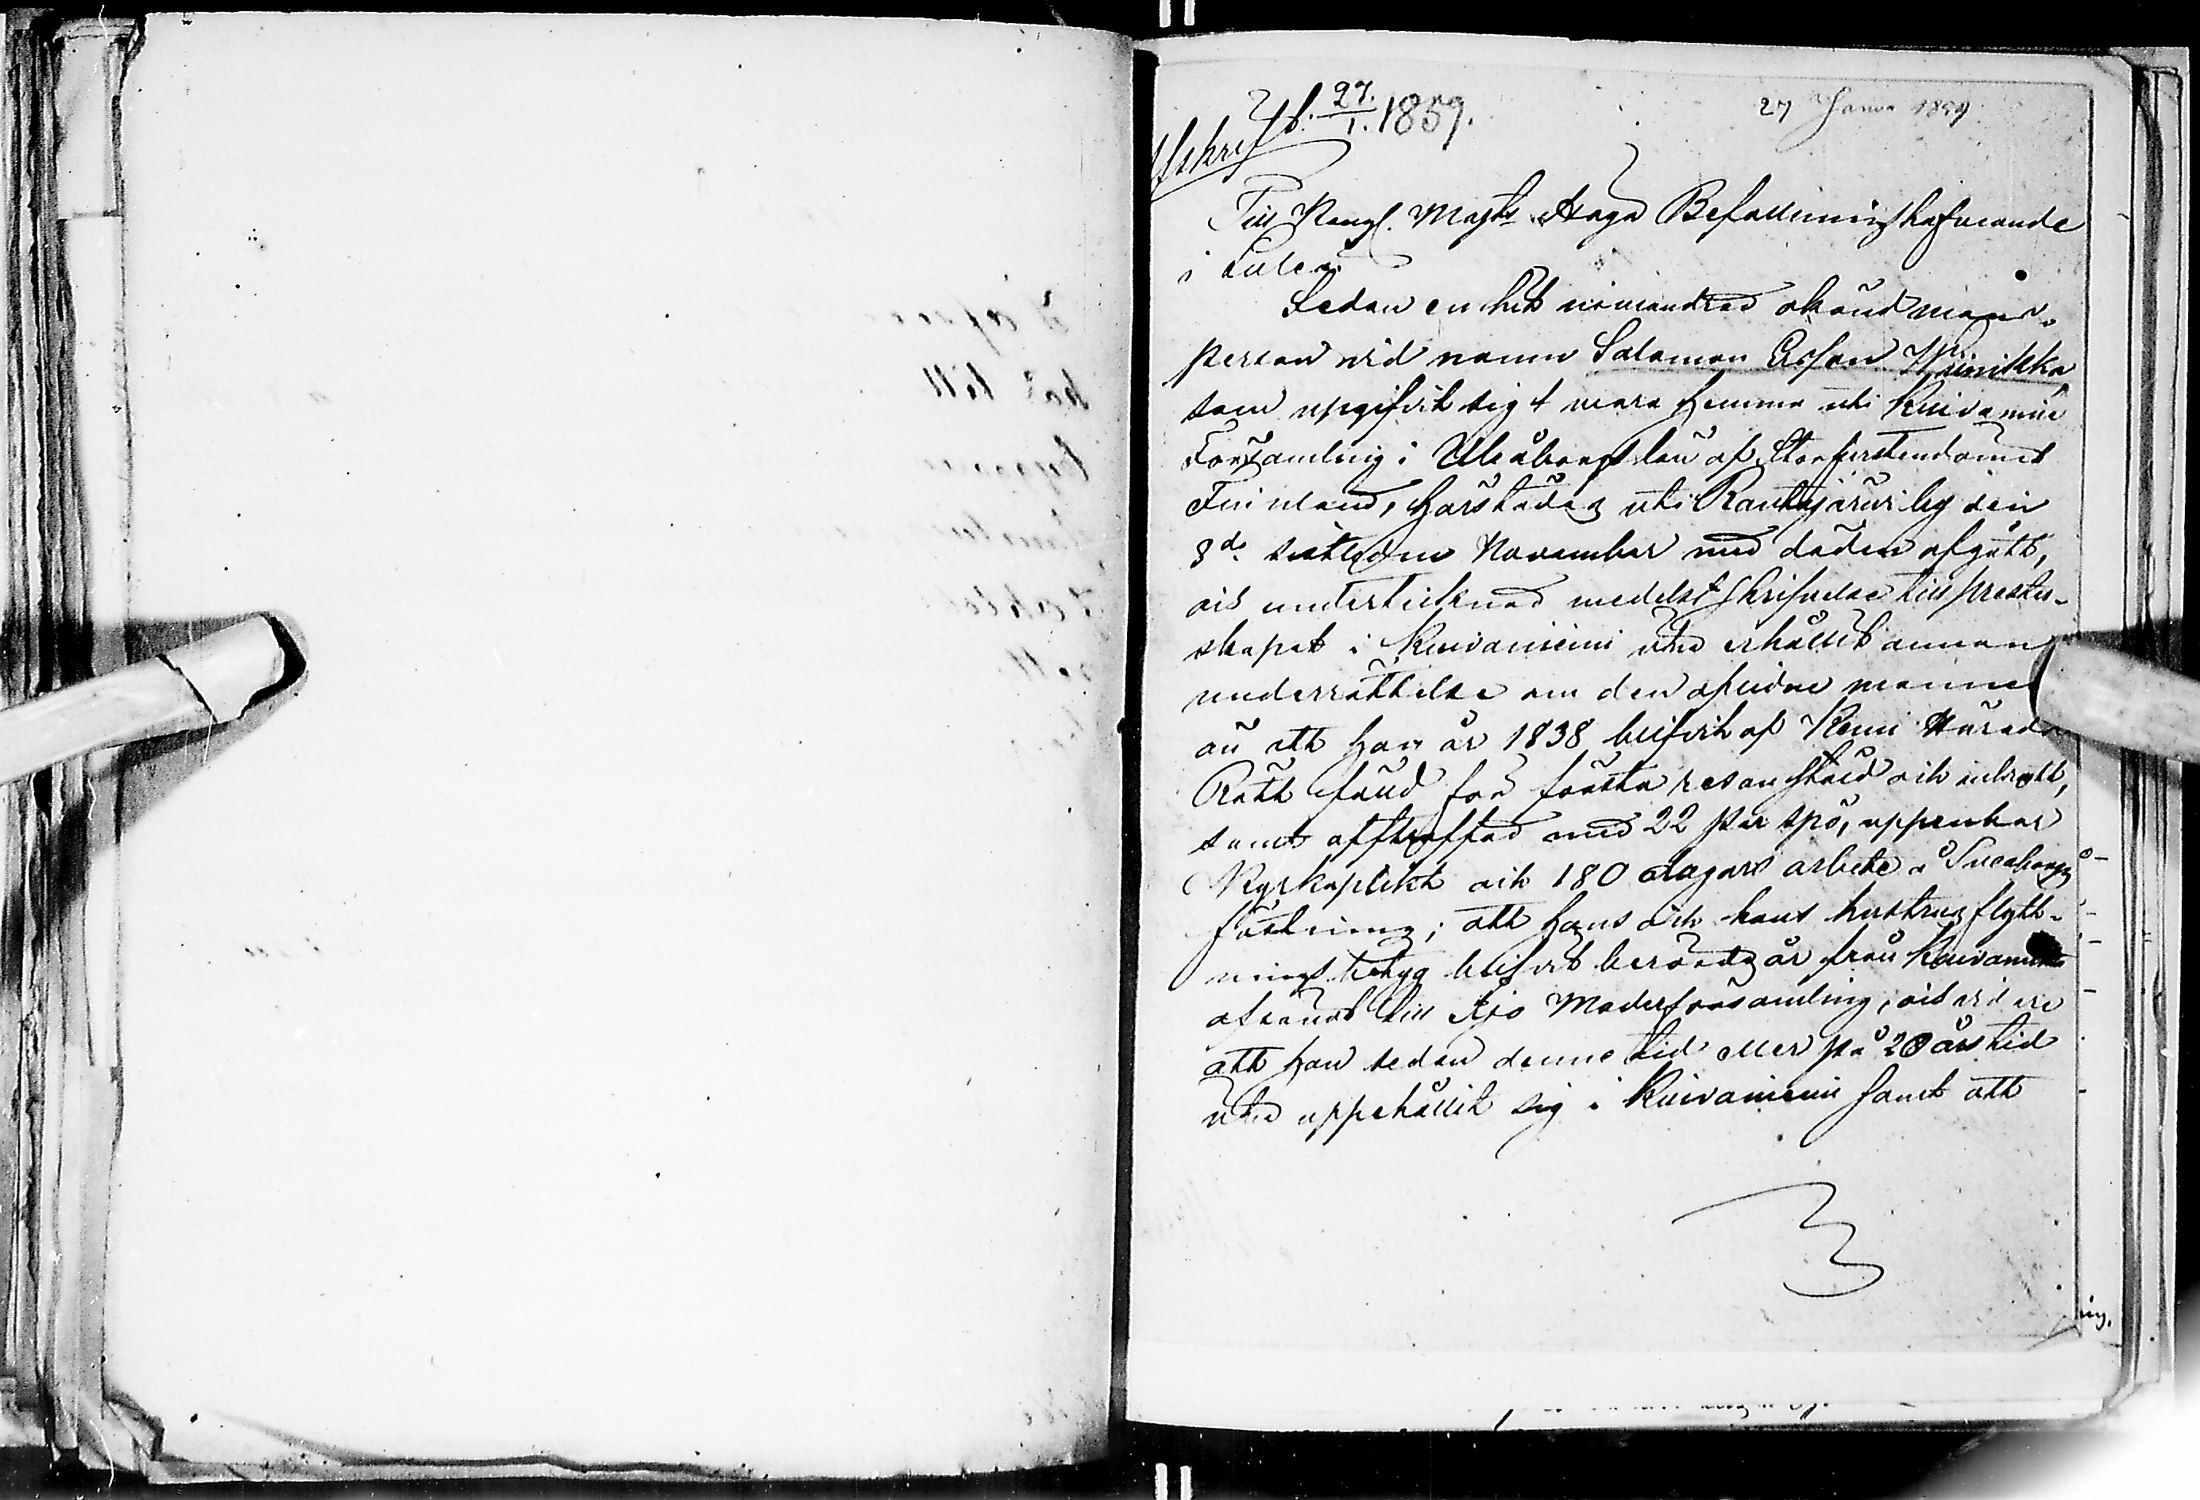 Afskrift. 27/1. 1859.
27 Janua 1859
Till Kongl. Majts Höga Befallningshafvande
i Luleå.
Sedan en hit invandrad okänd mans-
person vid namn Salomon Ersson Hiinikka
som uppgifvit sig vara hemma uti Kuivaniemi
Församling i Uleåborgs län af Storfurstendömet
Finnland, härstädes uti Rautajärvi by den
8de sistledne November med döden afgått,
och undertecknad medelst skrifvelse till prester-
skapet i Kuivaniemi icke erhållit annan
underrättelse om den aflidne mannen
än att han år 1838 blifvit af Kemi Härads
Rätt fälld för första resan stöld och inbrott,
samt afstraffad med 22 par spö, uppenbar
Kyrkoplikt och 180 dagars arbete å Sveaborgs
fästning; att hans och hans hustrus flytt-
ningsbetyg blifvit berörde år från Kuivaniemi
afsändt till Ijo Moderförsamling, och vidare
att han sedan denne tid eller på 20 års tid
icke uppehållit sig i Kuivaniemi samt att